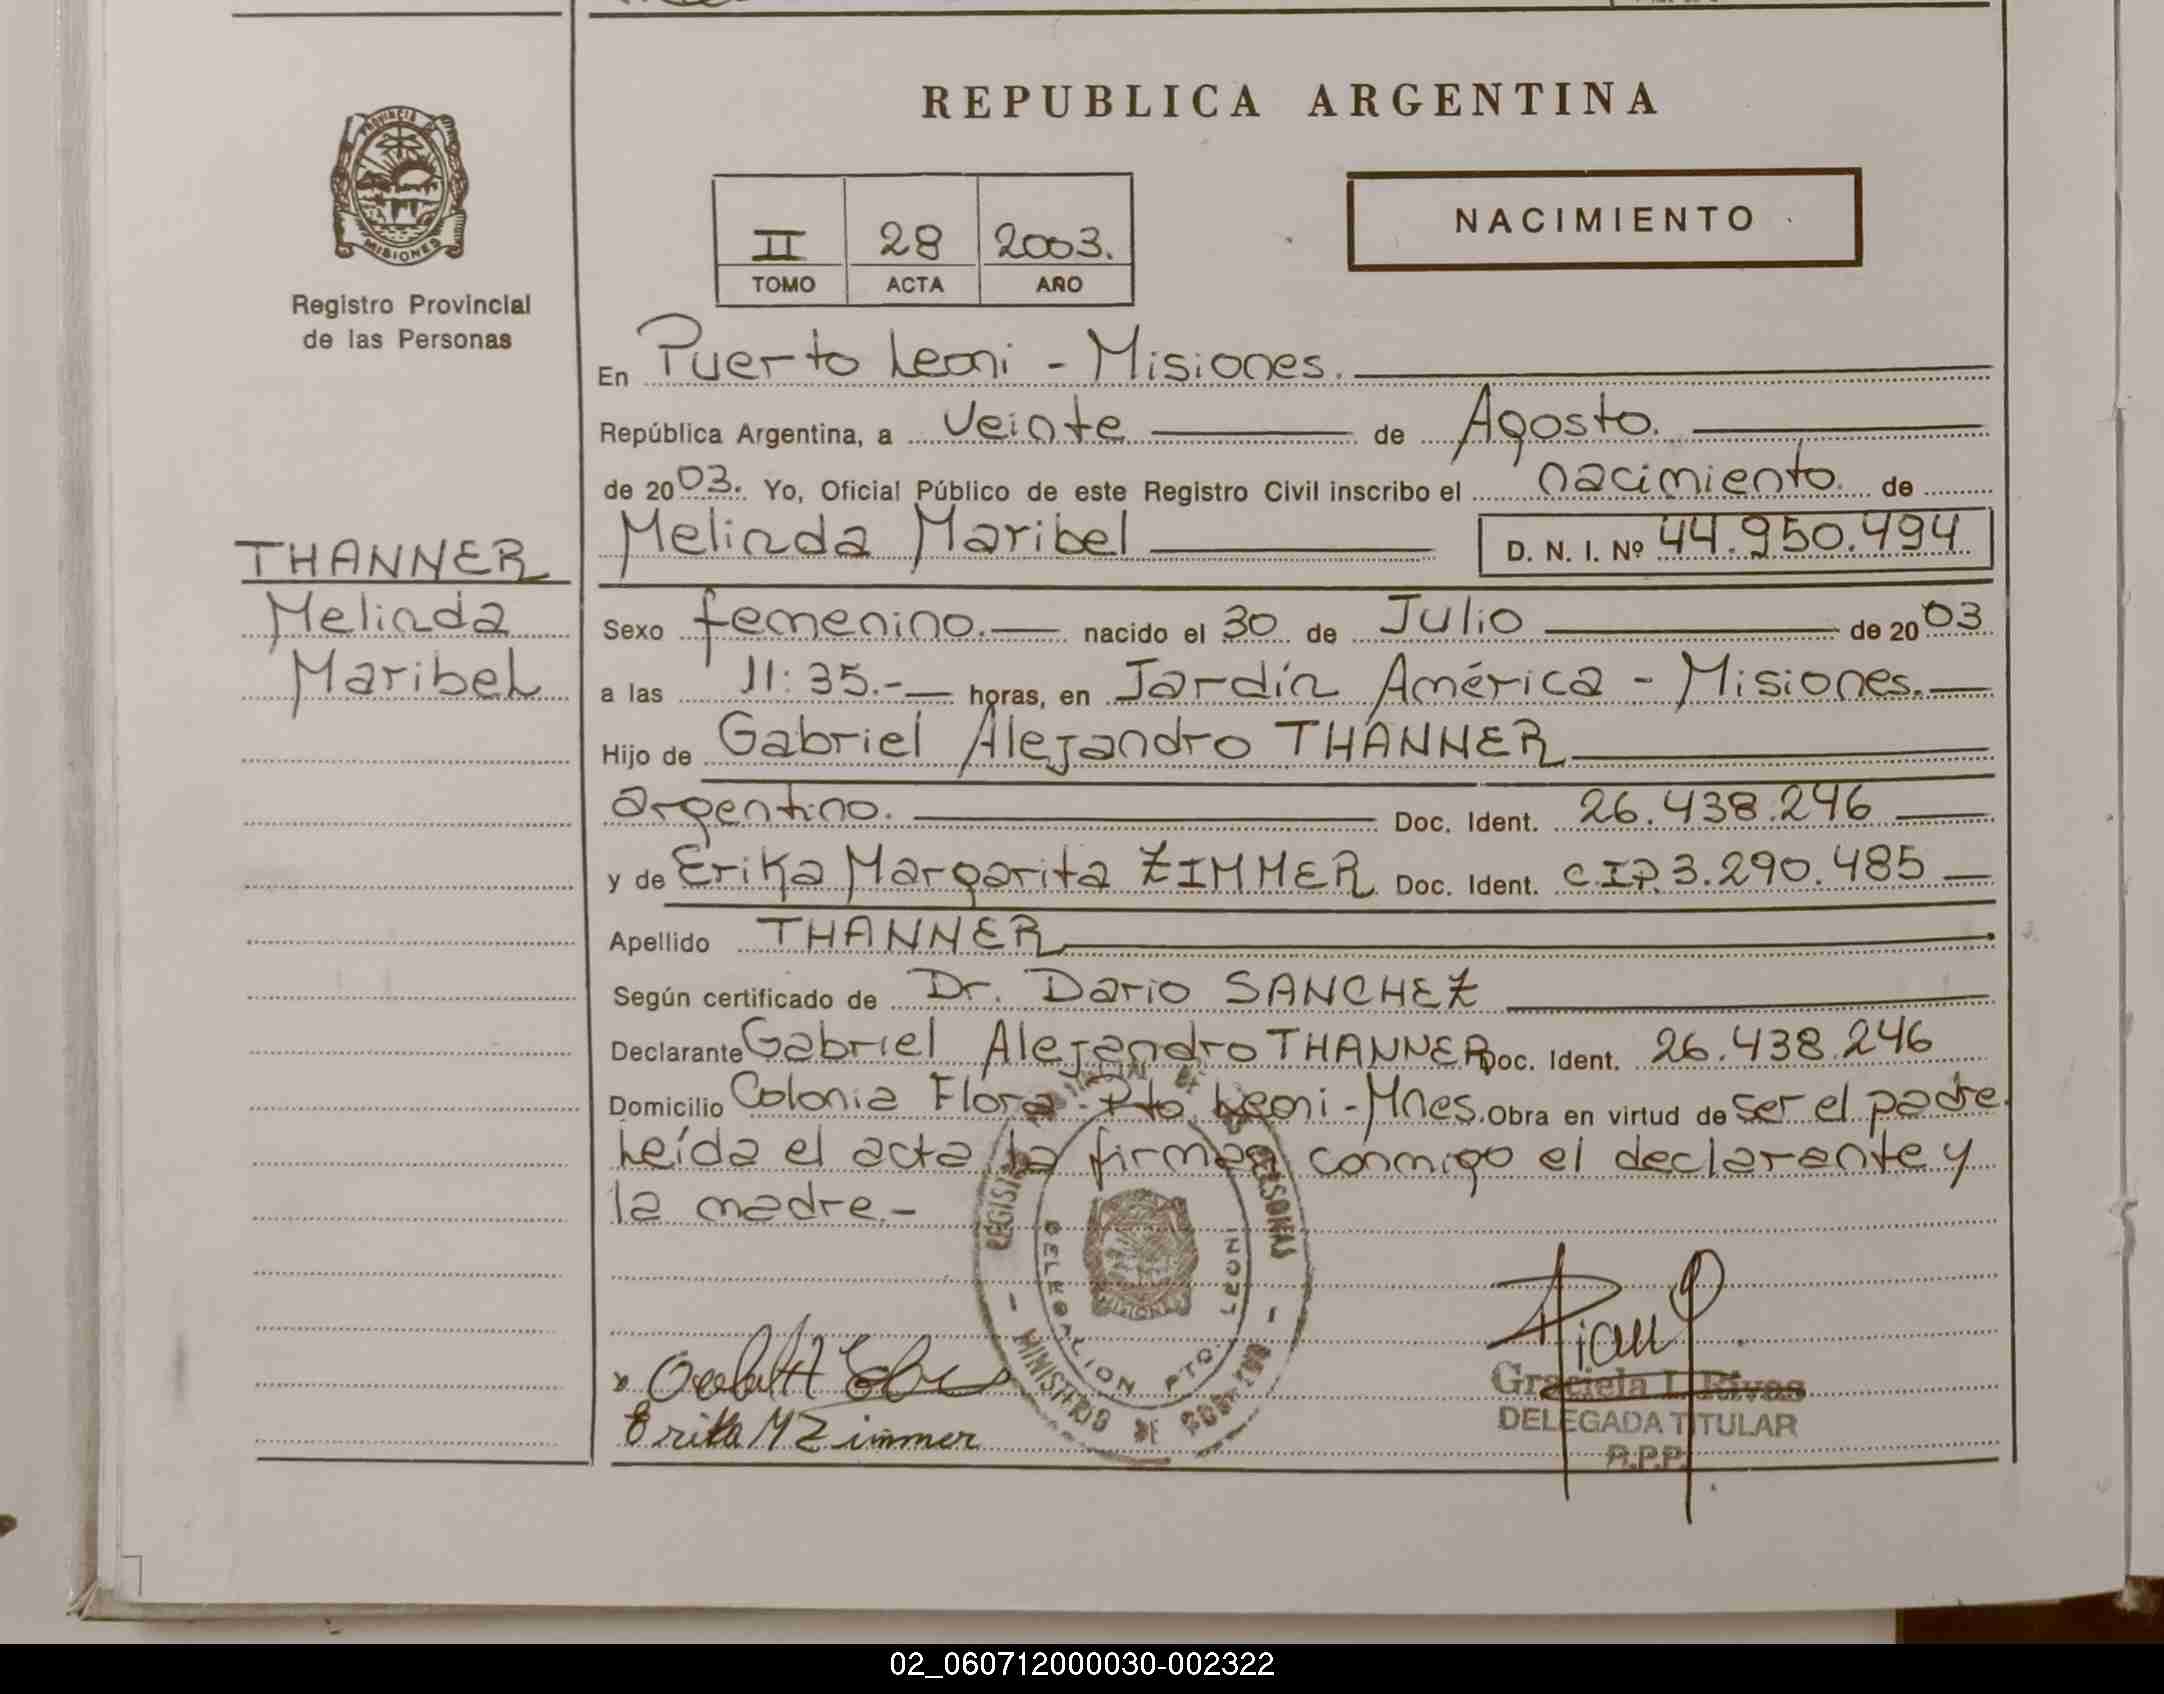 REPUBLICA ARGENTINA
PROVINCIA DE
MISIONES
Registro Provincial
de las Personas
II 28 2003.
TOMO ACTA AÑO
NACIMIENTO
En Puerto Leoni - Misiones.
República Argentina, a veinte de Agosto.
de 2003. Yo, Oficial Público de este Registro Civil inscribo el nacimiento de
Melinda Maribel D. N. I. Nº 44.950.494
THANNER
Melinda
Maribel
Sexo femenino. nacido el 30 de Julio de 2003
a las 11:35.- horas, en Jardín América - Misiones.
Hijo de Gabriel Alejandro THANNER
argentino. Doc. Ident. 26.438.246
y de Erika Margarita ZIMMER Doc. Ident. C.I.P. 3.290.485
Apellido THANNER
Según certificado de Dr. Dario SANCHEZ
Declarante Gabriel Alejandro THANNER Doc. Ident. 26.438.246
Domicilio Colonia Flora - Pto. Leoni - Mnes. Obra en virtud de ser el padre.
Leída el acta la firman conmigo el declarante y
la madre.-
DELEGACION PTO. LEONI
MISIONES
MINISTERIO DE
Erika M Zimmer
Graciela I. Rivas
DELEGADA TITULAR
R.P.P.
02_060712000030-002322